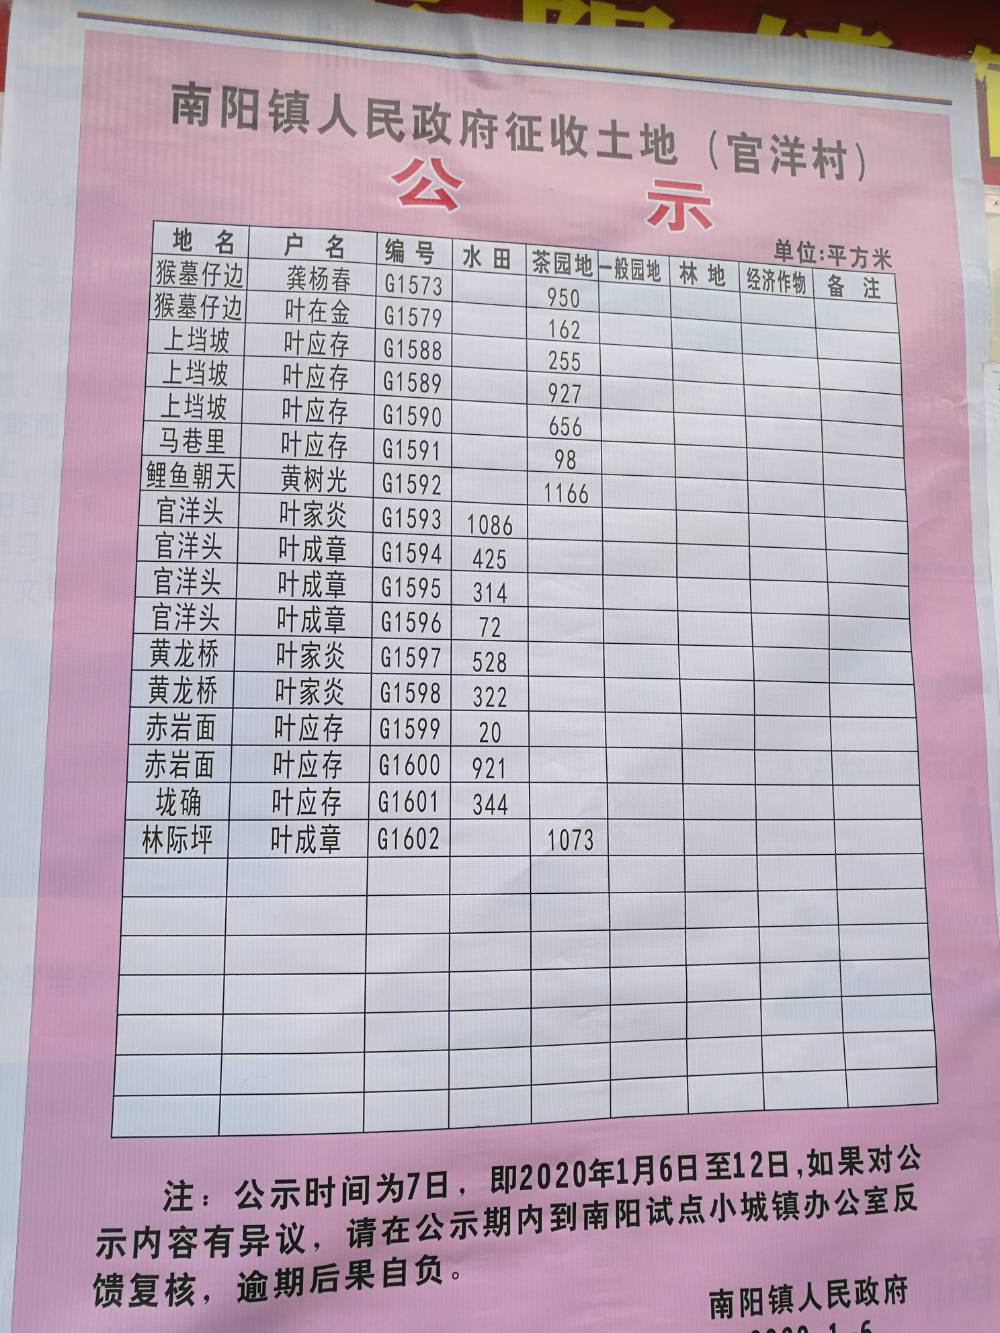 南阳镇人民政府征收土地（官洋村）
公 示
单位:平方米
地 名 户 名 编 号 水 田 茶园地 一般园地 林 地 经济作物 备 注
猴墓仔边 龚杨春 G1573 950
猴墓仔边 叶在金 G1579 162
上垱坡 叶应存 G1588 255
上垱坡 叶应存 G1589 927
上垱坡 叶应存 G1590 656
马巷里 叶应存 G1591 98
鲤鱼朝天 黄树光 G1592 1166
官洋头 叶家炎 G1593 1086
官洋头 叶成章 G1594 425
官洋头 叶成章 G1595 314
官洋头 叶成章 G1596 72
黄龙桥 叶家炎 G1597 528
黄龙桥 叶家炎 G1598 322
赤岩面 叶应存 G1599 20
赤岩面 叶应存 G1600 921
垅确 叶应存 G1601 344
林际坪 叶成章 G1602 1073
注：公示时间为7日，即2020年1月6日至12日,如果对公
示内容有异议，请在公示期内到南阳试点小城镇办公室反
馈复核，逾期后果自负。
南阳镇人民政府
2020.1.6